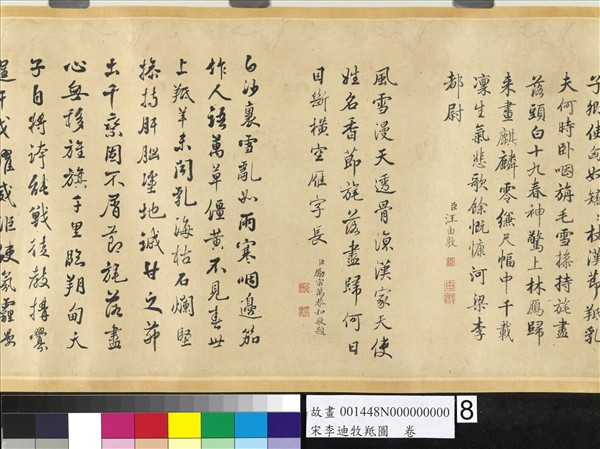 夫何時卧咽旃毛雪操持旄盡
落頭白十九春神驚上林鴈歸
来畫麒麟零縑尺幅中千載
凜生氣悲歌餘慨慷河梁李
都尉
臣汪由敦
風雪漫天透骨涼漢家天使
姓名香節旄落盡歸何日
目斷橫空雁字長
臣勵宗萬恭和敬題
白沙裏雪亂如雨寒咽邊笳
作人語萬草僵黃不見春世
上羝羊未聞乳海枯石爛堅
操持肝腦塗地誠甘之茆
土千乘固不屑節旄落盡
心無移旌旗千里臨朔向天
子自將誇能戰徒教
故畫 001448N000000000
宋李迪牧羝圖 卷
8